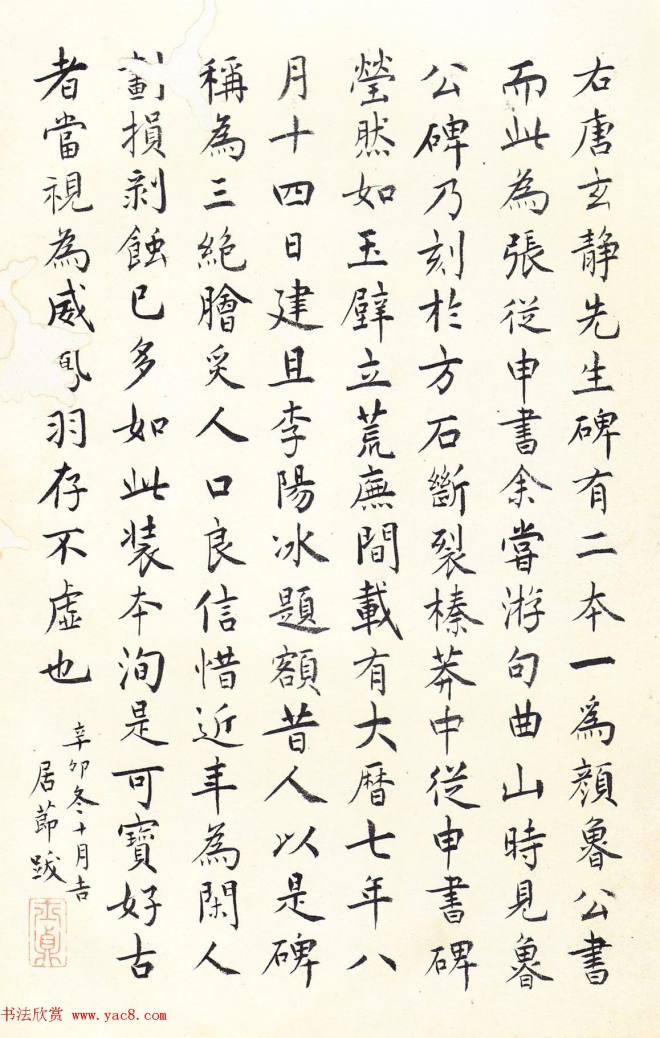 右唐玄静先生碑有二本一爲顔魯公書
而此為張從申書余甞游句曲山時見魯
公碑乃刻於方石斷裂榛莽中從申書碑
瑩然如玉壁立荒廡間載有大暦七年八
月十四日建且李陽冰題額昔人以是碑
稱為三絶膾炙人口良信惜近年為閑人
劃損剥蝕已多如此装本洵是可寶好古
者當視為威鳳羽存不虛也
辛卯冬十月吉
居節跋
士貞
书法欣赏 www.yac8.com